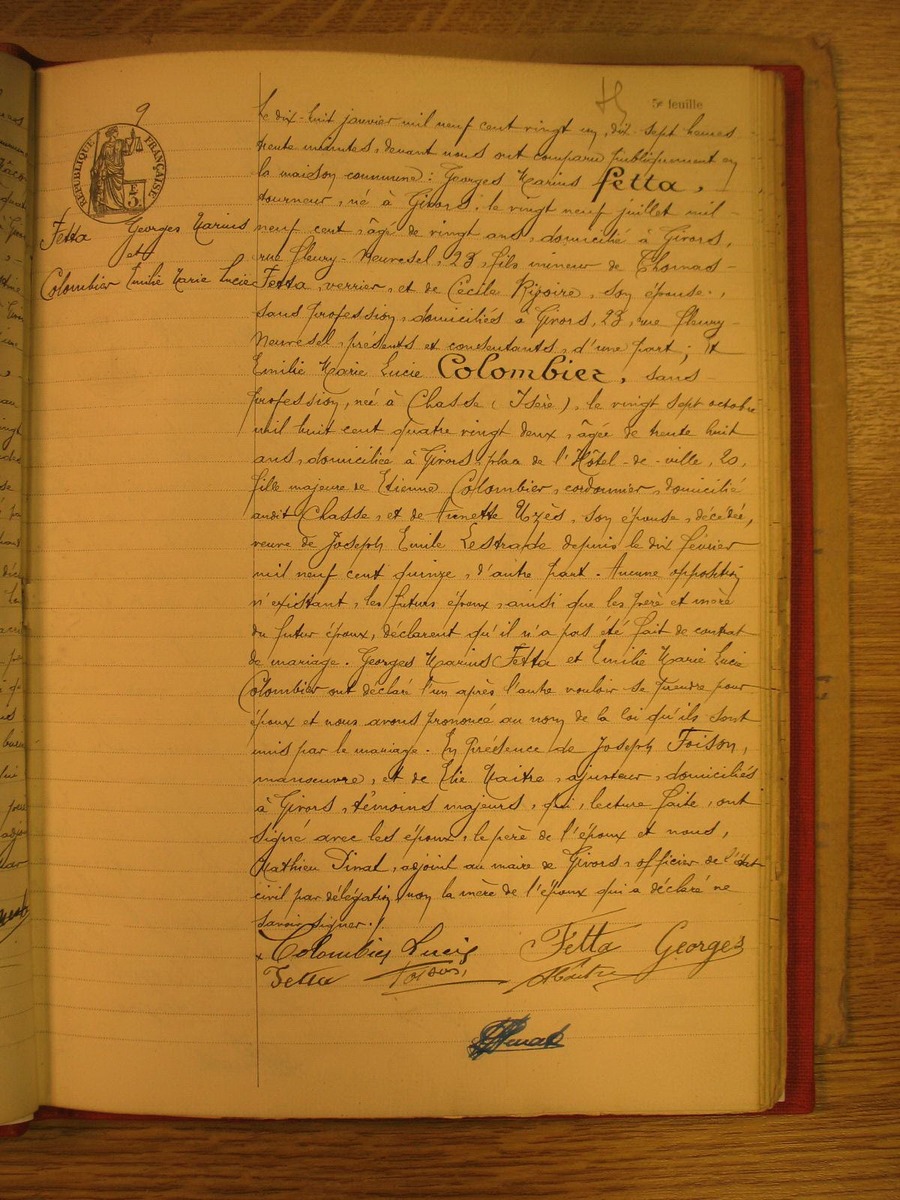 9
5e feuille
RÉPUBLIQUE FRANÇAISE
Fetta Georges Marius
et
Colombier Emilie Marie Lucie
Le dix-huit janvier mil neuf cent vingt un, dix-sept heures
trente minutes, devant nous ont comparu publiquement en
la maison commune : Georges Marius Fetta,
tourneur, né à Givors, le vingt neuf juillet mil
neuf cent, âgé de vingt ans, domicilié à Givors,
rue Fleury-Neuvesel, 23, fils mineur de Thomas
Fetta, verrier, et de Cécile Rigoire, son épouse,
sans profession, domiciliés à Givors, 23, rue Fleury-
Neuvesel, présents et consentants, d'une part ; Et
Emilie Marie Lucie Colombier, sans
profession, née à Chasse (Isère), le vingt sept octobre
mil huit cent quatre vingt deux, âgée de trente huit
ans, domiciliée à Givors, place de l'Hôtel-de-ville, 20,
fille majeure de Etienne Colombier, cordonnier, domicilié
audit Chasse, et de Annette Uzès, son épouse, décédée,
veuve de Joseph Emile Lestrade depuis le dix février
mil neuf cent quinze, d'autre part. Aucune opposition
n'existant, les futurs époux, ainsi que les père et mère
du futur époux, déclarent qu'il n'a pas été fait de contrat
de mariage. Georges Marius Fetta et Emilie Marie Lucie
Colombier ont déclaré l'un après l'autre vouloir se prendre pour
époux et nous avons prononcé au nom de la loi qu'ils sont
unis par le mariage. En présence de Joseph Foison,
manœuvre, et de Elie Maitre, ajusteur, domiciliés
à Givors, témoins majeurs, qui, lecture faite, ont
signé avec les époux, le père de l'époux et nous,
Mathieu Pinat, adjoint au maire de Givors, officier de l'état
civil par délégation, non la mère de l'époux qui a déclaré ne
savoir signer.
Colombier Lucie Fetta Georges
Fetta Foison Maitre